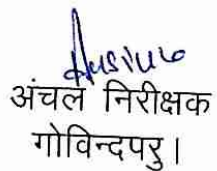 अंचल निरीक्षक
गोविन्दपुर।